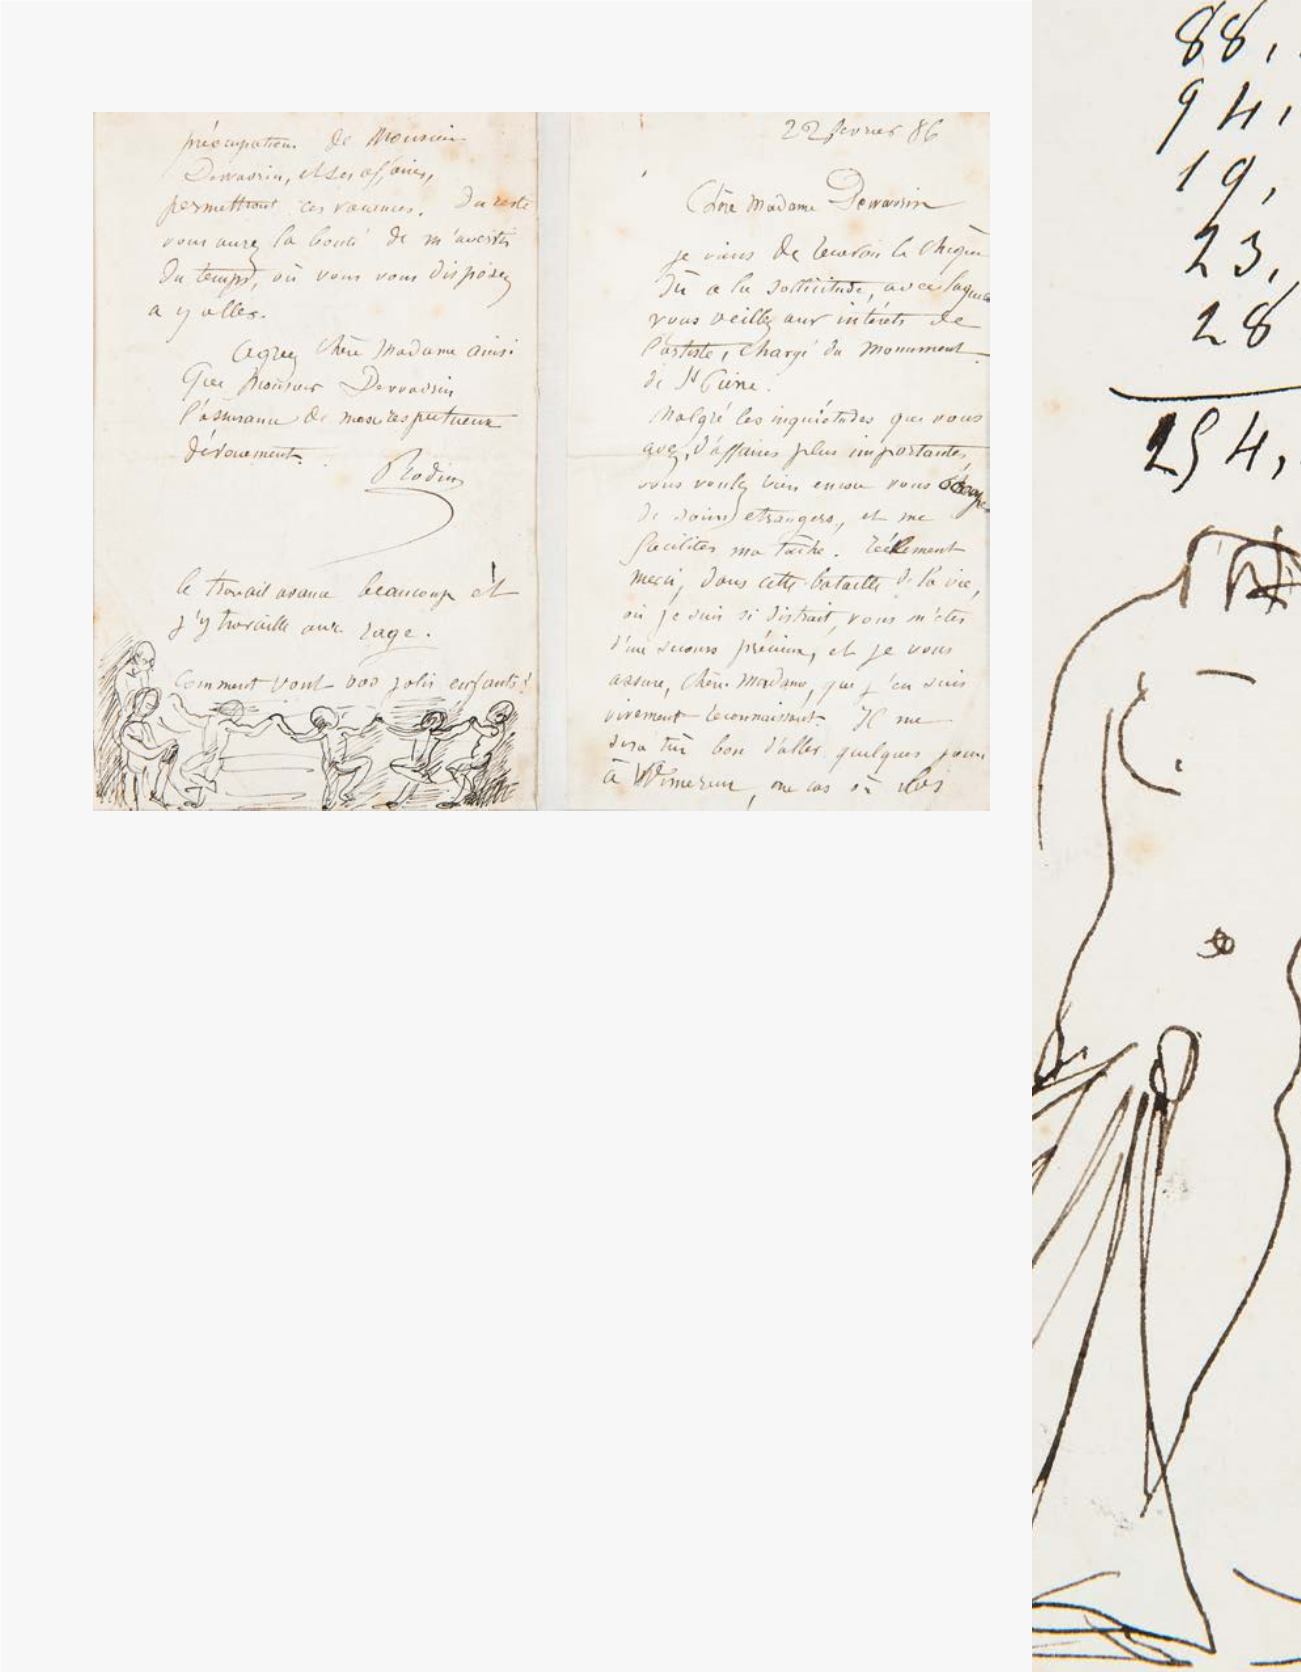 22 fevrier 86
Chère Madame Dewavrin
je viens de recevoir le chèque
dû a la sollicitude, avec laquelle
vous veillez aux intérets de
l'artiste, chargé du Monument
de St Pierre.
Malgré les inquiétudes que vous
avez, d'affaires plus importantes,
vous voulez bien encore vous
de soins etrangers, et me
faciliter ma tache. réellement
merci, dans cette bataille de la vie,
où je suis si distrait, vous m'êtes
d'un secours précieux, et je vous
assure, chère Madame, que j'en suis
vivement reconnaissant. Il me
sera très bon d'aller quelques jours
à Wimereux, au cas où les
préocupations de Monsieur
Dewavrin, et ses affaires,
permettront ces vacances. Du reste
vous aurez la bonté de m'avertir
du temps, où vous vous disposez
a y aller.
Agréez chère Madame ainsi
que Monsieur Dewavrin
l'assurance de mon respectueux
dévouement.
Rodin
le travail avance beaucoup et
j'y travaille avec rage.
Comment vont vos jolis enfants?
88,
94,
19,
23,
28
254,